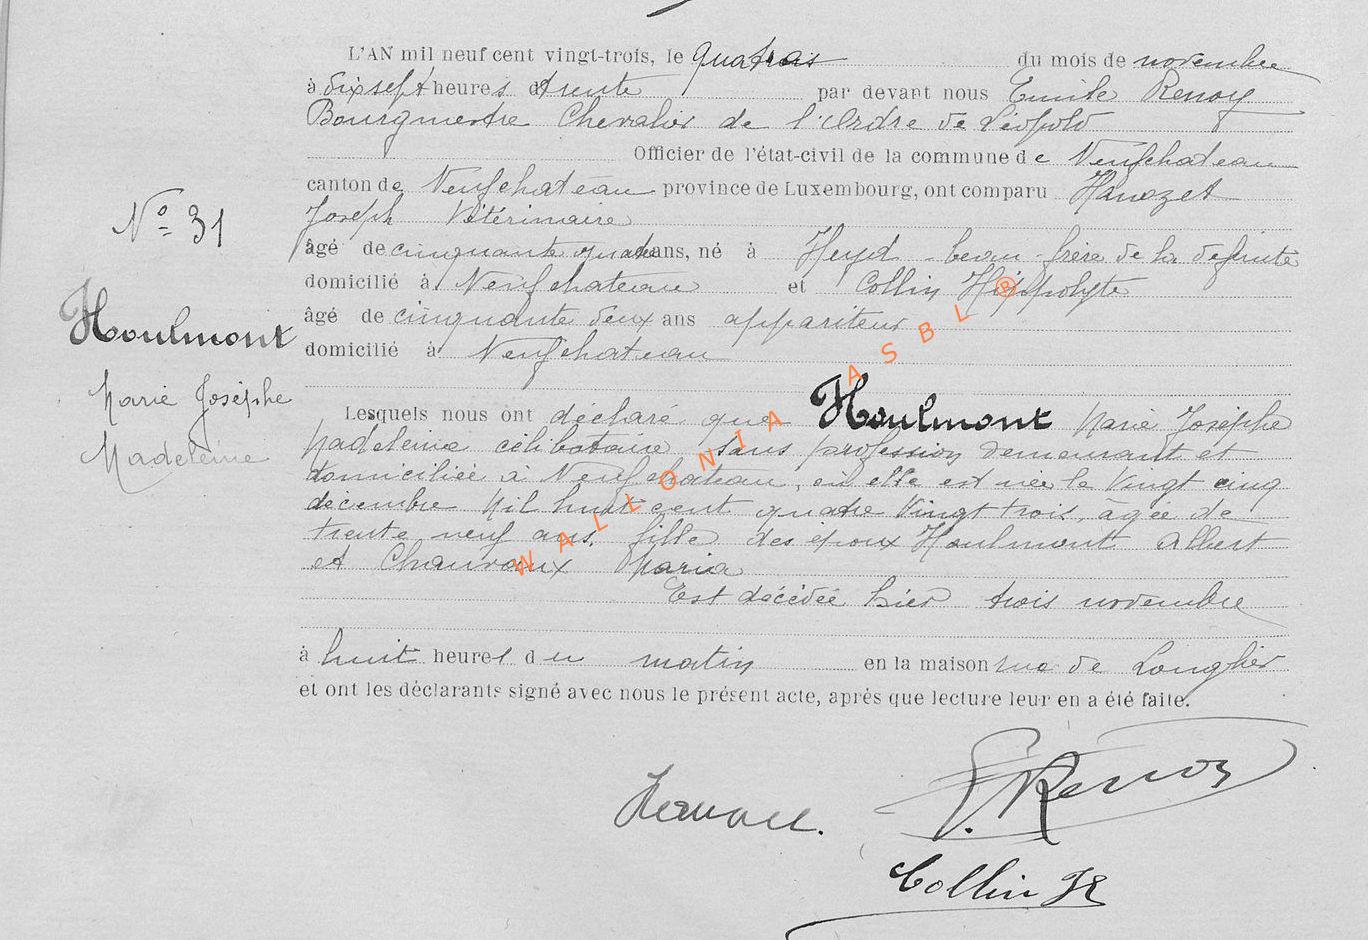 L'AN mil neuf cent vingt-trois, le quatre du mois de novembre
à dix sept heures trente par devant nous Emile Renoy
Bourgmestre Chevalier de l'Ordre de Léopold
Officier de l'état-civil de la commune de Neufchateau
canton de Neufchateau province de Luxembourg, ont comparu
Joseph Vétérinaire
N° 31
âgé de cinquante quatre ans, né à Heyd beau-frère de la défunte
domicilié à Neufchateau et Collin Hippolyte
âgé de cinquante deux ans appariteur
Houlmont
domicilié à Neufchateau
Marie Josèphe
Lesquels nous ont déclaré que Houlmont Marie Josèphe
Madeleine
Madeleine célibataire sans profession demeurant et
domiciliée à Neufchateau, où elle est née le vingt cinq
décembre Mil huit cent quatre vingt trois, âgée de
trente neuf ans, fille des époux Houlmont Albert
et Chauvaux Maria
Est décédée hier trois novembre
à huit heures du matin en la maison rue de Longlier
et ont les déclarants signé avec nous le présent acte, après que lecture leur en a été faite.
E. Renoy
Collin H
WALLONIA ASBL ®